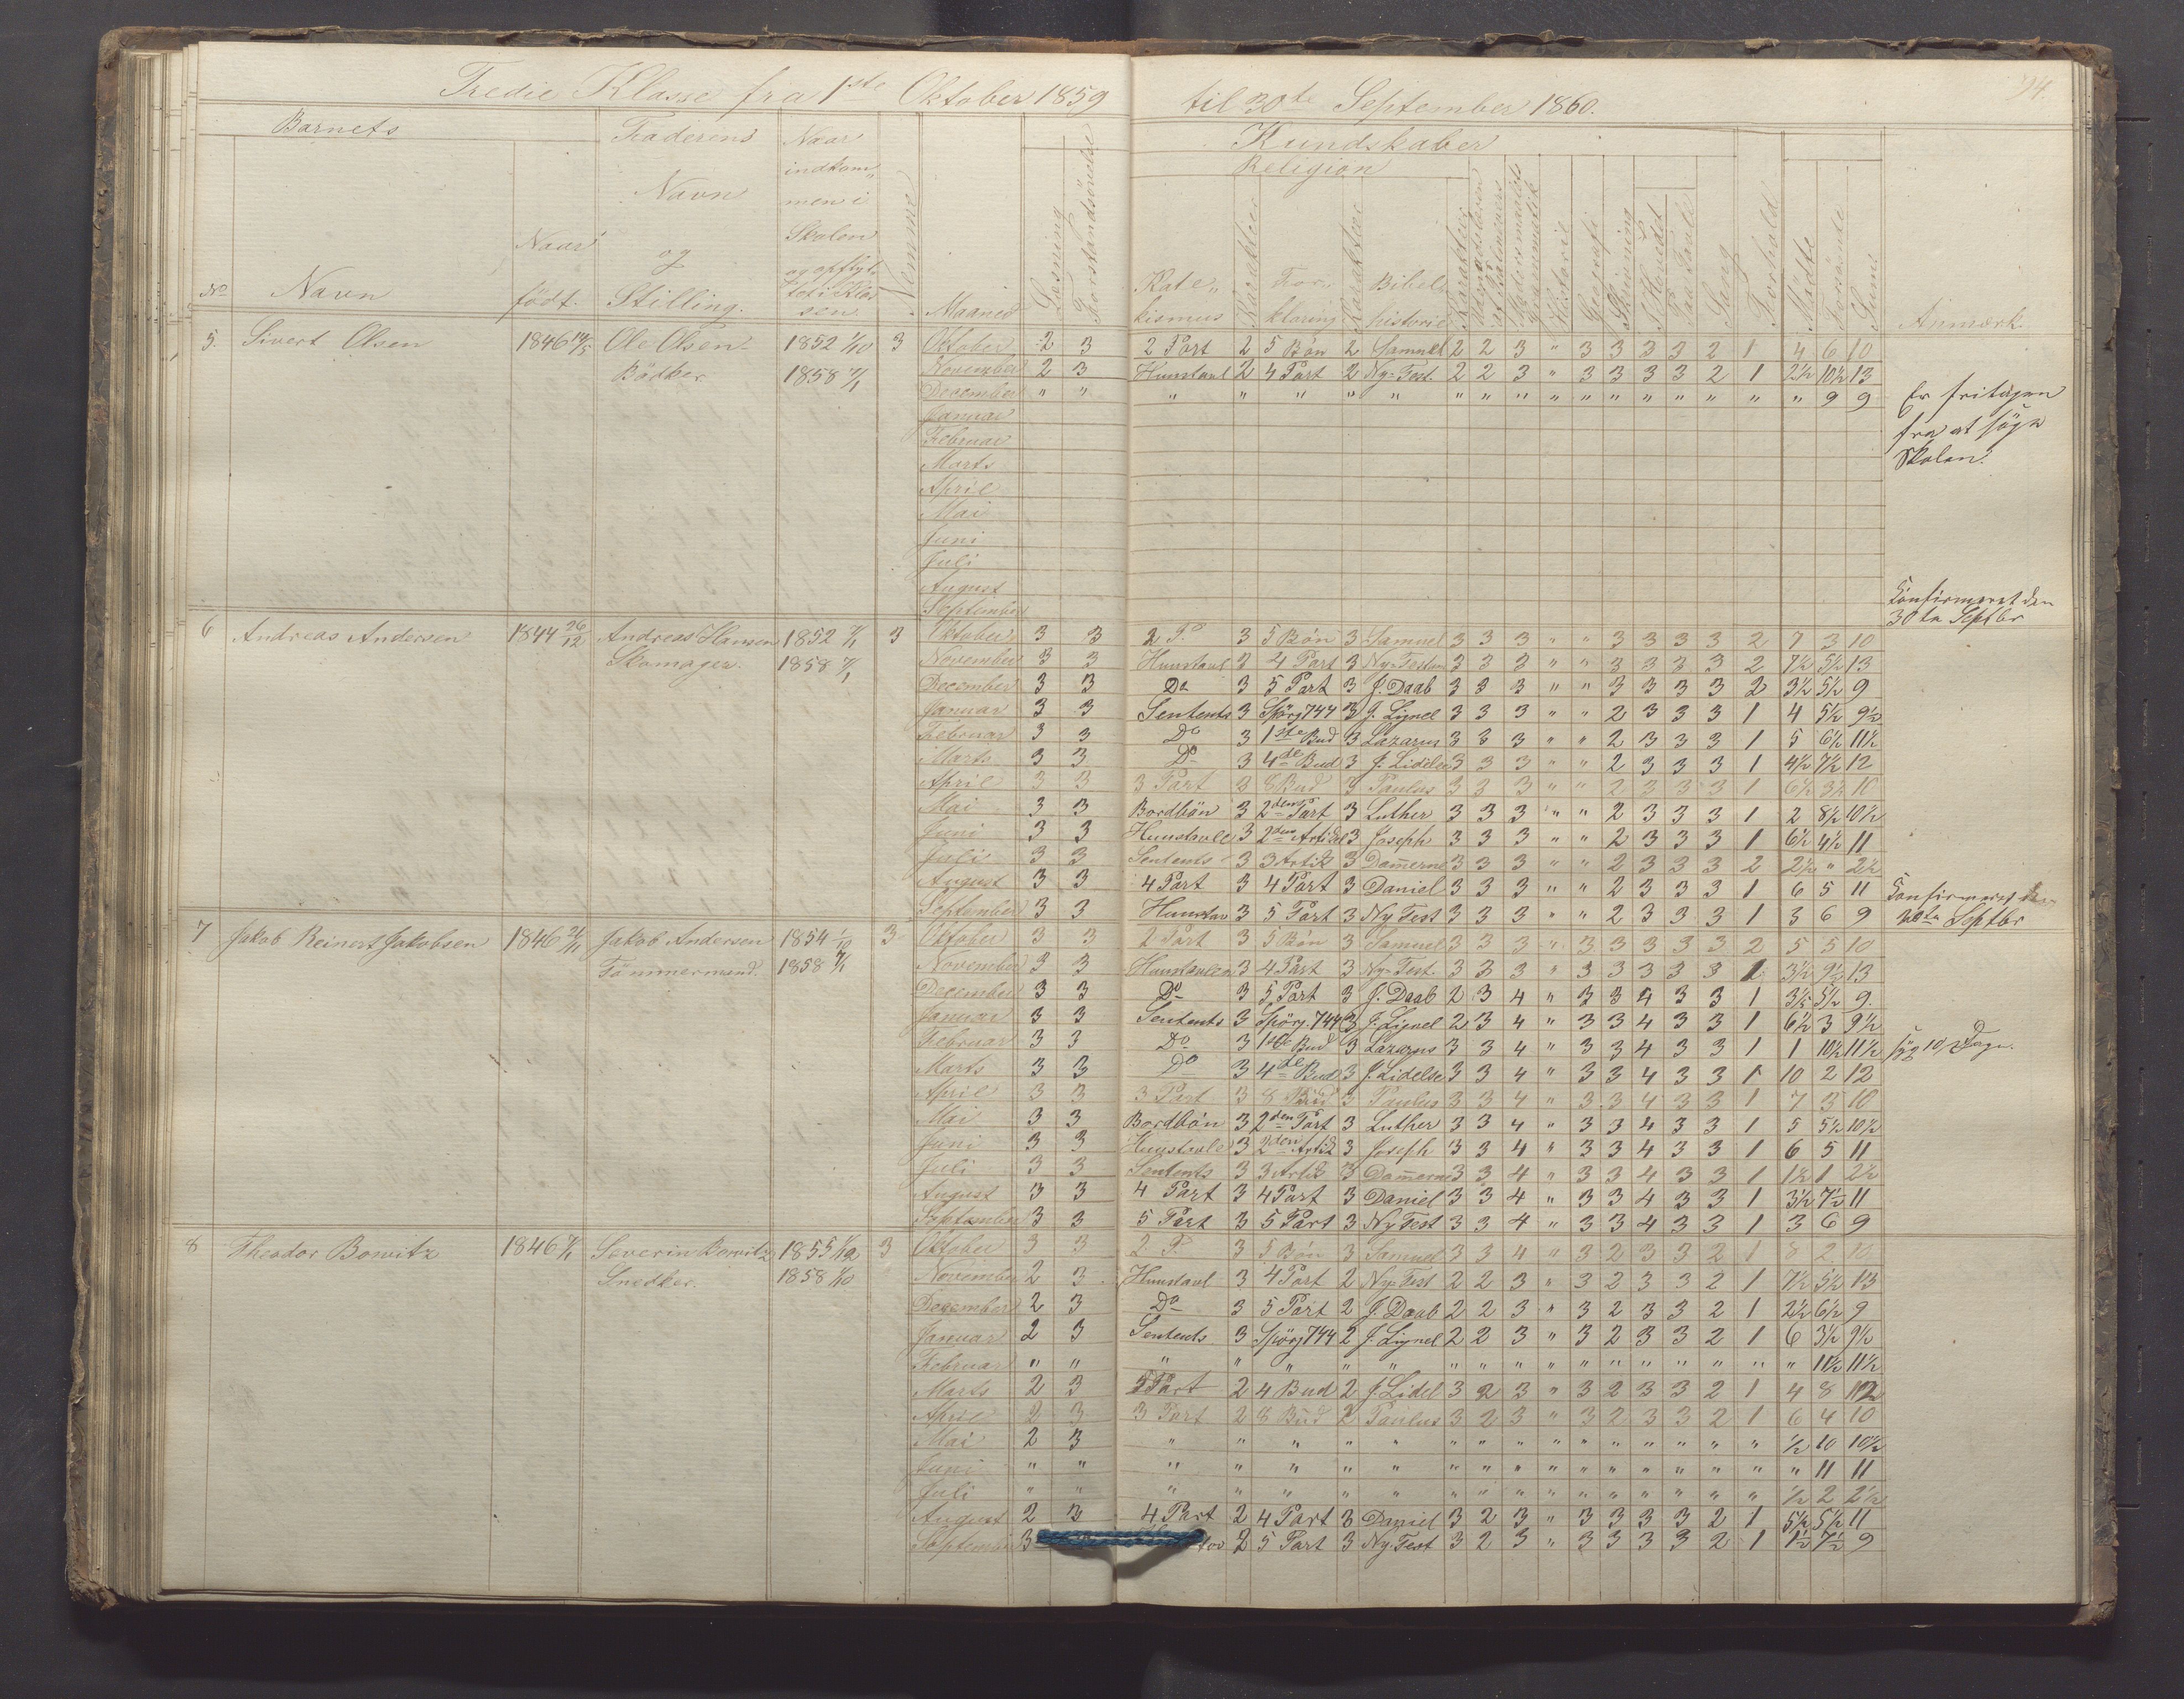 Tredie Klasse fra 1ste Oktober 1859 til 30te September 1860.
94.
Barnets
Faderens
Naar indkommen i Skolen og opflyttet i Klassen.
Nemme
Maaned
Læsning
Forstandsøvelse
Kundskaber
Religion
No
Navn
Naar født.
Navn og Stilling.
Katekismus
Karakter
Forklaring
Karakter
Bibelhistorie
Karakter
Udenadslæren af Psalmevers
Modersmaalets Grammatik
Historie
Geografi
Skrivning
I Hovedet
Paa Tavle
Sang
Forhold
Mødte
Forsømte
Sum
Anmærk.
5. Sivert Olsen 1846 14/5 Ole Olsen 1852 1/10 3 Oktober 2 3 2 Part 2 5 Bön 2 Samuel 2 2 3 " 3 3 3 3 2 1 4 6 10
Bödker 1858 7/1 November 2 3 Huustavl 2 4 Part 2 Ny-Test. 2 2 3 " 3 3 3 3 2 1 2½ 10½ 13
December " " " " " " " " " " " " " " " " " " 9 9 Er fritagen
Januar
fra at søge
Februar
Skolen.
Marts
April
Mai
Juni
Juli
August
Konfirmeret den
September
30te Septbr
6 Andreas Andersen 1844 26/12 Andreas Hansen 1852 7/1 3 Oktober 3 3 2 P. 3 5 Bön 3 Samuel 3 3 3 " " 3 3 3 3 2 7 3 10
Skomager. 1858 7/1 November 3 3 Huustavl 3 4 Part 3 Ny-Testam 3 3 3 " " 3 3 3 3 2 7½ 5½ 13
December 3 3 Do 3 5 Part 3 J. Daab 3 3 3 " " 3 3 3 3 2 3½ 5½ 9
Januar 3 3 Sentents 3 Spörg 744 3 J. Lignel 3 3 3 " " 2 3 3 3 1 4 5½ 9½
Februar 3 3 Do 3 1ste Bud 3 Lazarus 3 3 3 " " 2 3 3 3 1 5 6½ 11½
Marts 3 3 Do 3 4de Bud 3 J. Lidelse 3 3 3 " " 2 3 3 3 1 4½ 7½ 12
April 3 3 3 Part 3 8 Bud 3 Paulus 3 3 3 " " 2 3 3 3 1 6½ 3½ 10
Mai 3 3 Bordbön 3 2den Part 3 Luther 3 3 3 " " 2 3 3 3 1 2 8½ 10½
Juni 3 3 Huustavle 3 2den Artikel 3 Joseph 3 3 3 " " 2 3 3 3 1 6½ 4½ 11
Juli 3 3 Sentents 3 3 Artik 3 Dommerne 3 3 3 " " 2 3 3 3 2 2½ " 2½
August 3 3 4 Part 3 4 Part 3 Daniel 3 3 3 " " 2 3 3 3 1 6 5 11 Konfirmeret den
September 3 3 Huustav 3 5 Part 3 Ny Test 3 3 3 " " 2 3 3 3 1 3 6 9 Septbr
7 Jakob Reinert Jakobsen 1846 21/11 Jakob Andersen 1854 1/10 3 Oktober 3 3 2 Part 3 5 Bön 3 Samuel 3 3 3 " 3 3 3 3 3 2 5 5 10
Tömmermand. 1858 7/1 November 3 3 Huustavlen 3 4 Part 3 Ny-Test. 3 3 3 " 3 3 3 3 3 1 3½ 9½ 13
December 3 3 Do 3 5 Part 3 J. Daab 2 3 4 " 3 3 4 3 3 1 3½ 5½ 9
Januar 3 3 Sentents 3 Spörg. 744 3 J. Lignel 2 3 4 " 3 3 4 3 3 1 6½ 3 9½
Februar 3 3 Do 3 1ste Bud 3 Lazarus 3 3 4 " 3 3 4 3 3 1 1 10½ 11½ syg 10 Dage.
Marts 3 3 Do 3 4de Bud 3 J. Lidelse 3 3 4 " 3 3 4 3 3 1 10 2 12
April 3 3 3 Part 3 8 Bud 3 Paulus 3 3 4 " 3 3 4 3 3 1 7 3 10
Mai 3 3 Bordbön 3 2den Part 3 Luther 3 3 4 " 3 3 4 3 3 1 5 5½ 10½
Juni 3 3 Huustavle 3 2den Artik 3 Joseph 3 3 4 " 3 3 4 3 3 1 6 5 11
Juli 3 3 Sentents 3 3 Artik 3 Dommerne 3 3 4 " 3 3 4 3 3 1 1½ 1 2½
August 3 3 4 Part 3 4 Part 3 Daniel 3 3 4 " 3 3 4 3 3 1 3½ 7½ 11
September 3 3 5 Part 3 5 Part 3 Ny Test 3 3 4 " 3 3 4 3 3 1 3 6 9
8 Theodor Bowitz 1846 7/11 Severin Bowitz 1855 1/10 3 Oktober 3 3 2 P. 3 5 Bön 3 Samuel 3 3 4 " 3 2 3 3 2 1 8 2 10
Snedker. 1858 1/10 November 2 3 Huustavl 3 4 Part 2 Ny-Test 2 2 3 " 3 2 3 3 2 1 7½ 5½ 13
December 2 3 Do 3 5 Part 2 J. Daab 2 2 3 " 3 2 3 3 2 1 2½ 6½ 9
Januar 2 3 Sentents 3 Spörg 744 2 J. Lignel 2 2 3 " 3 2 3 3 2 1 6 3½ 9½
Februar " " " " " " " " " " " " " " " " " " 11½ 11½
Marts 2 3 3 Part 2 4 Bud 2 J. Lidel 3 2 3 " 3 2 3 3 2 1 4 8 12
April 2 3 3 Part 2 8 Bud 2 Paulus 3 2 3 " 3 2 3 3 2 1 6 4 10
Mai 2 3 " " " " " " " " " " " " " " " ½ 10 10½
Juni " " " " " " " " " " " " " " " " " " 11 11
Juli " " " " " " " " " " " " " " " " " ½ 2 2½
August 2 3 4 Part 2 4 Part 3 Daniel 3 2 3 " 3 3 3 3 2 1 5½ 5½ 11
September 3 2 5 Part 3 Ny-Test 3 2 3 " 3 3 3 3 2 1 1½ 7½ 9